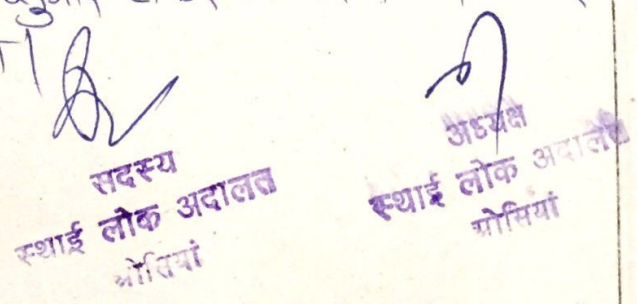 सदस्य
स्थाई लोक अदालत
ओसियां
अध्यक्ष
स्थाई लोक अदालत
ओसियां